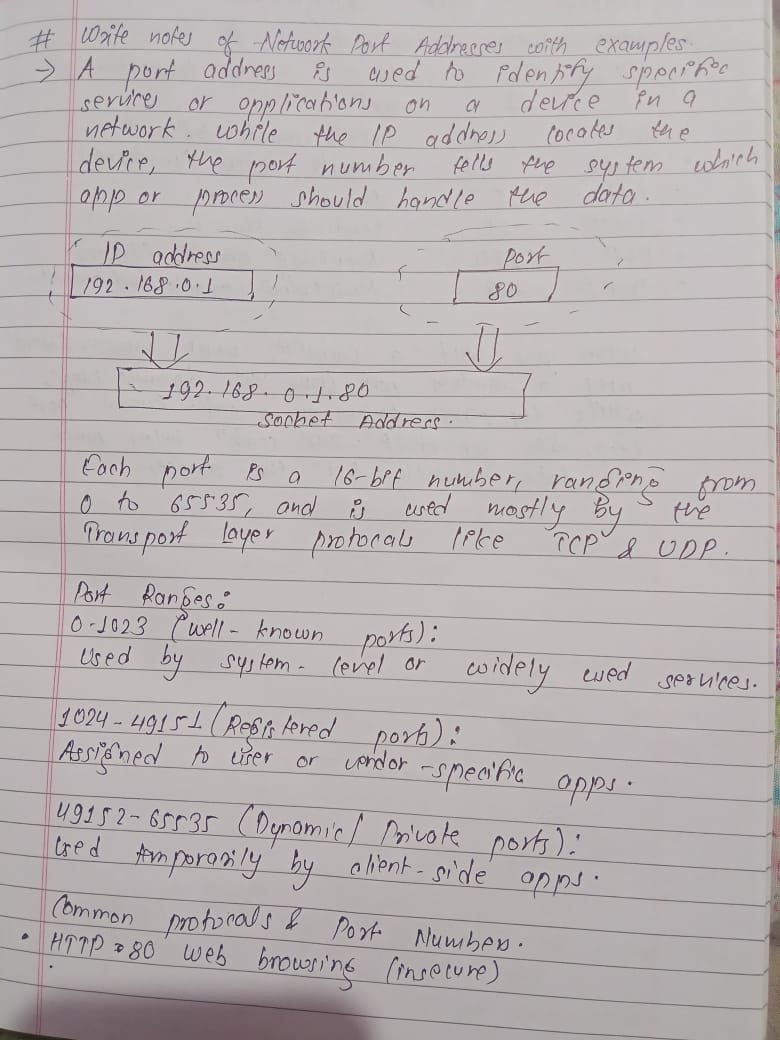 # Write notes of Network Port Addresses with examples.
→ A port address is used to identify specific
services or applications on a device in a
network. while the IP address locates the
device, the port number tells the system which
app or process should handle the data.
IP address Port
192.168.0.1 80
192.168.0.1.80
Socket Address.
Each port is a 16-bit number, ranging from
0 to 65535, and is used mostly by the
Transport layer protocals like TCP & UDP.
Port Ranges:
0-1023 (well-known ports):
Used by system-level or widely used services.
1024-49151 (Registered ports):
Assigned to user or vendor-specific apps.
49152-65535 (Dynamic/Private ports):
Used temporarily by client-side apps.
Common protocals & Port Numbers.
• HTTP → 80 web browsing (insecure)
•